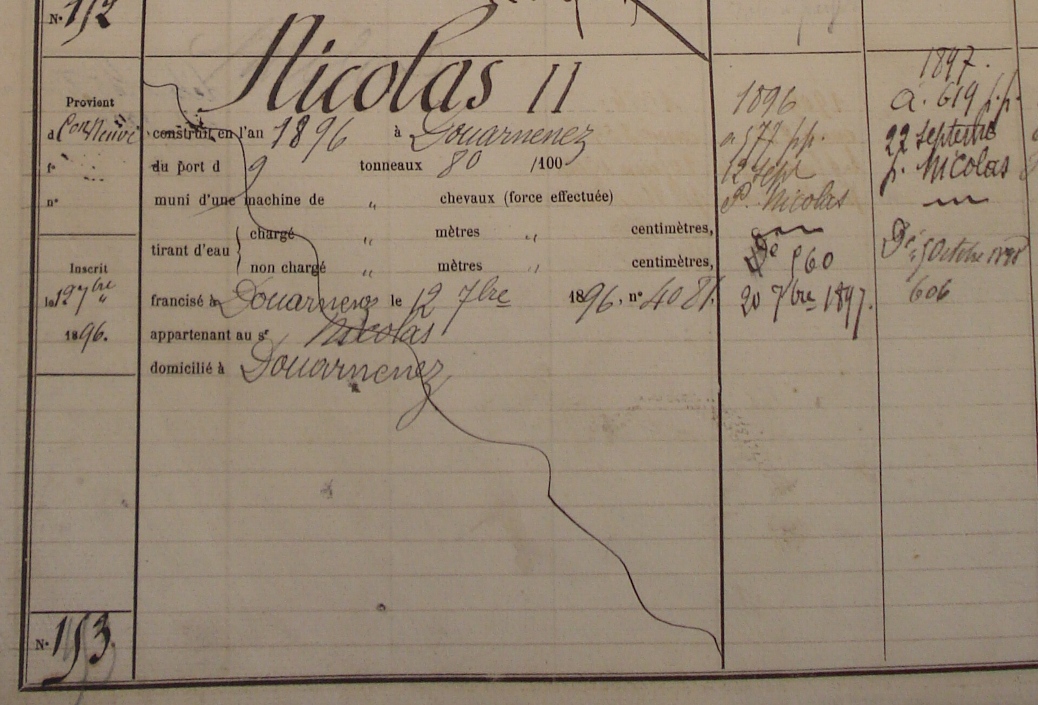 N° 152
Nicolas II
Provient
d Con Neuve
f°
n°
construit en l'an 1896 à Douarnenez
du port d 9 tonneaux 80 /100
muni d'une machine de „ chevaux (force effectuée)
tirant d'eau { chargé „ mètres „ centimètres,
non chargé „ mètres „ centimètres,
Inscrit
le 12 7bre
1896.
francisé à Douarnenez le 12 7bre 1896, n° 4081.
appartenant au sr Nicolas
domicilié à Douarnenez
N° 153
1896
a 577 p.p.
12 sept
P. Nicolas
De 560
20 7bre 1897.
1897.
a. 619 p.p.
22 septembre
p. Nicolas
De 5 Octobre 1898
606